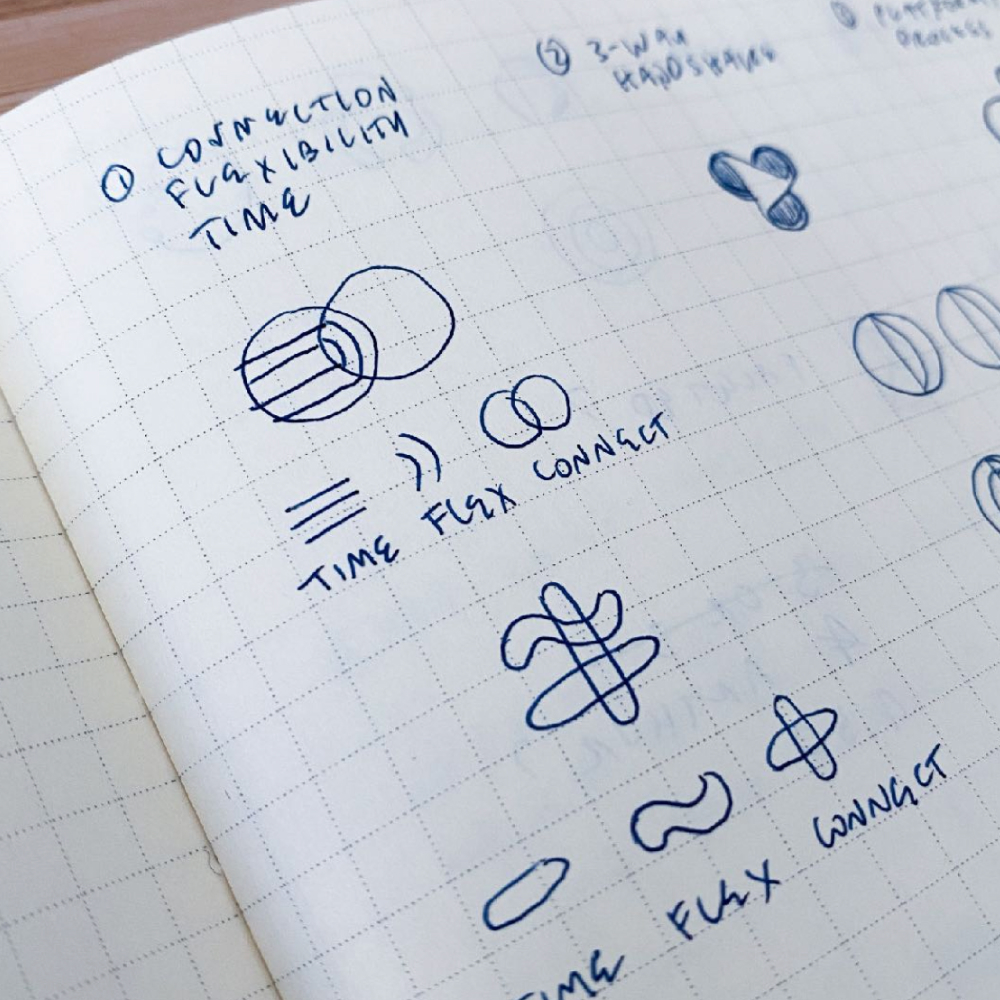 ① CONNECTION
FLEXIBILITY
TIME
② 3-WAY
HANDSHAKE
③
PROCESS
TIME FLEX CONNECT
TIME FLEX CONNECT